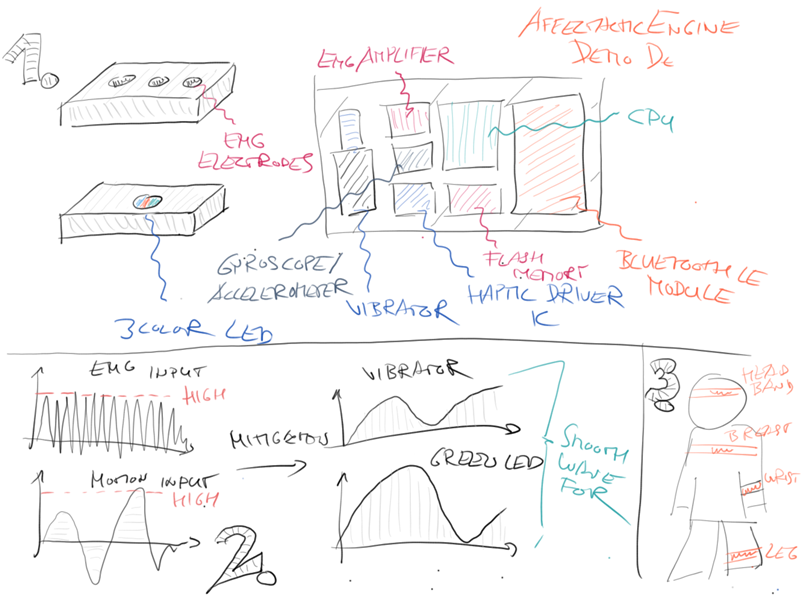 1.
EMG AMPLIFIER
AFFECTACTIC ENGINE
DEMO DE
CPU
EMG
ELECTRODES
GYROSCOPE/
ACCELEROMETER
VIBRATOR
HAPTIC DRIVER
IC
FLASH
MEMORY
BLUETOOTH LE
MODULE
3 COLOR LED
EMG INPUT
HIGH
MOTION INPUT
HIGH
2.
VIBRATOR
GREEN LED
SMOOTH
WAVE
FOR
3.
HEAD
BAND
BREAST
WRIST
LEG